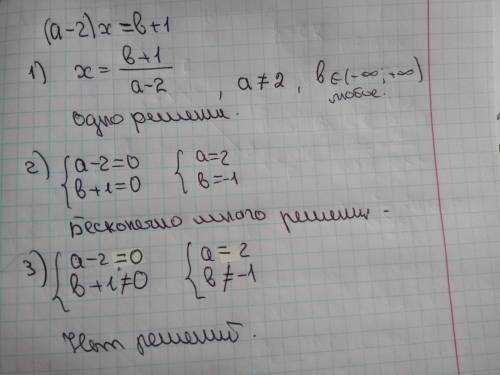 (a-2)x = b+1
1) x = \frac{b+1}{a-2}, a ≠ 2, b ∈ (-∞; +∞)
любое.
одно решение.
2) { a-2=0 { a=2
{ b+1=0 { b=-1
Бесконечно много решений.
3) { a-2=0 { a=2
{ b+1≠0 { b≠-1
Нет решений.